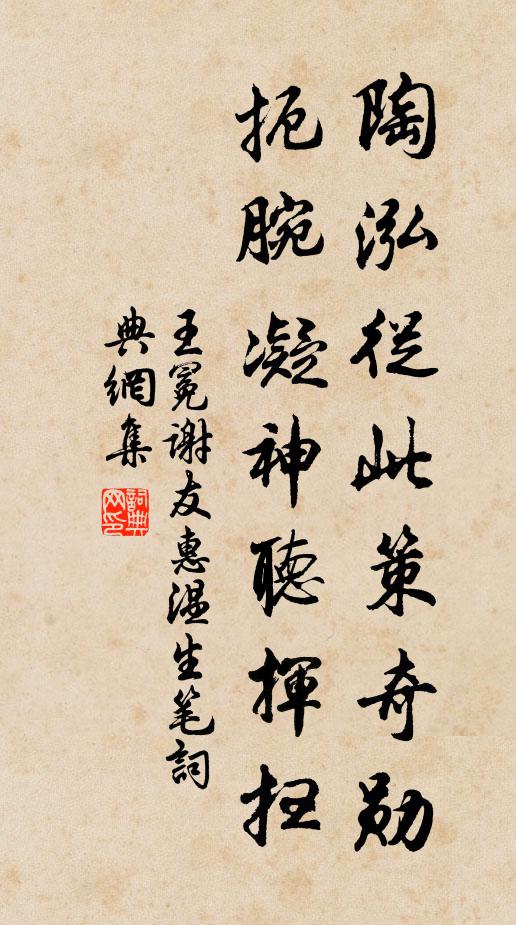 陶泓從此策奇勋
扼腕凝神聽揮扫
王冕謝友惠温生笔詞
典網集
詞典
网印